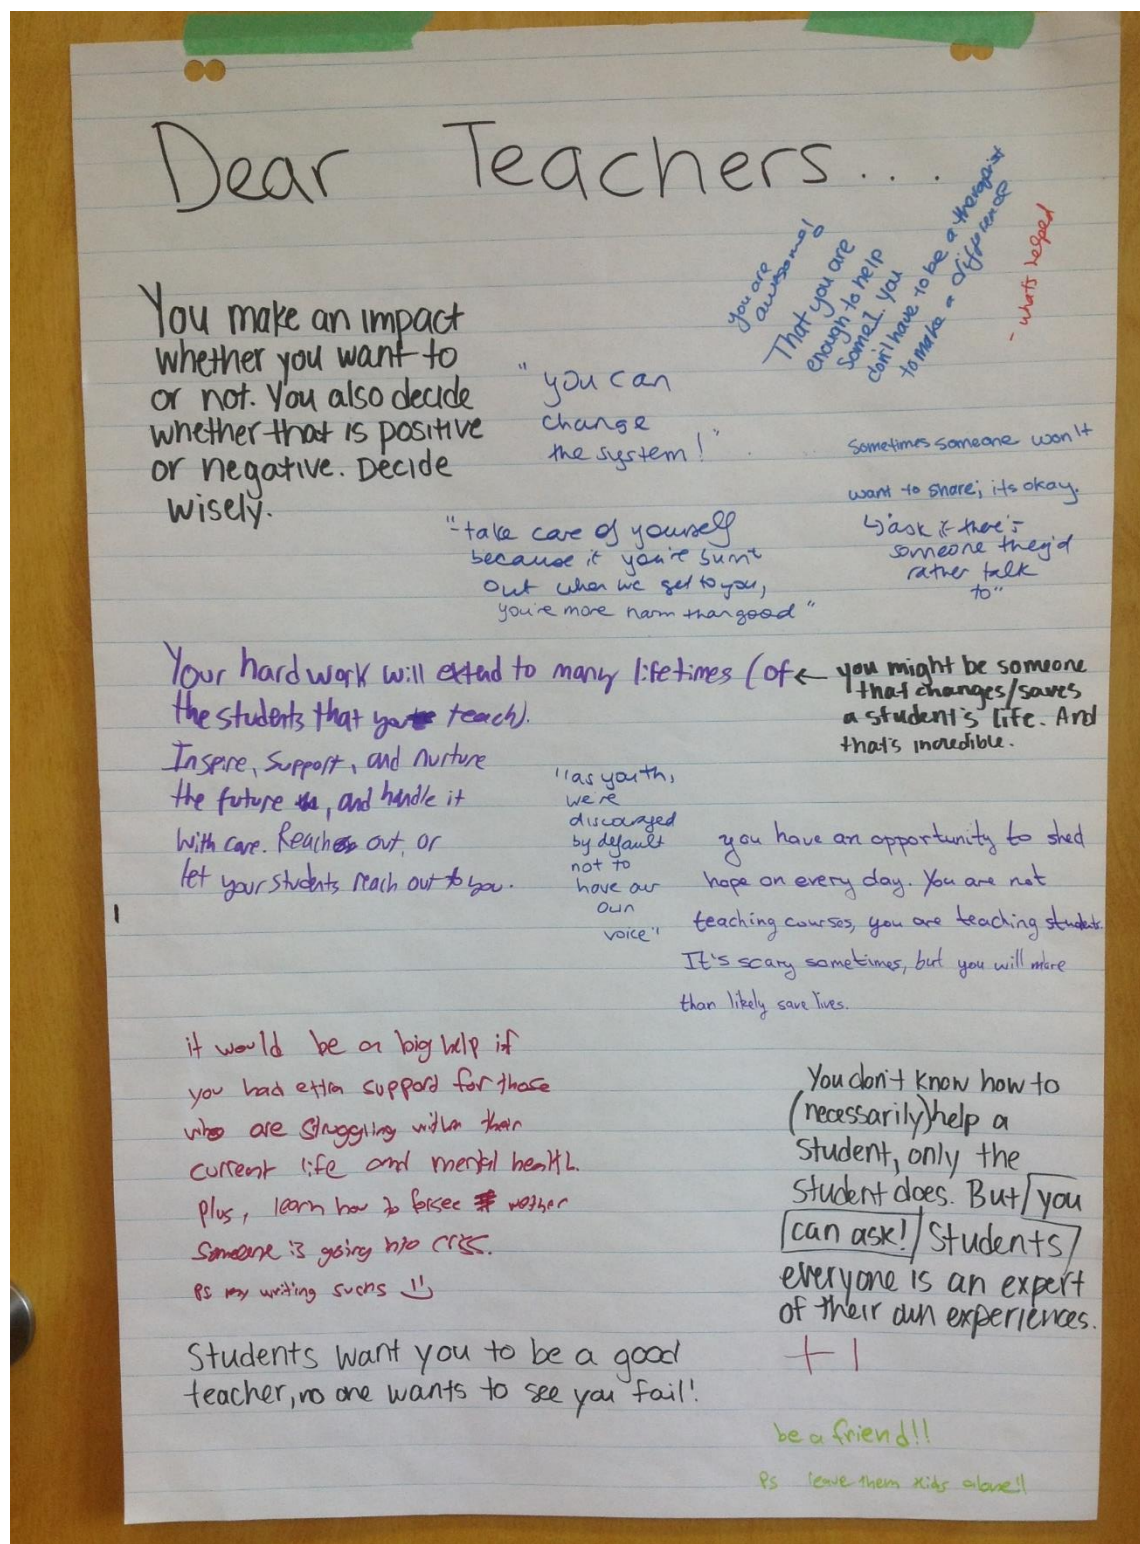 Dear Teachers...
you are
awesome!
That you are
enough to help
some1. You
don't have to be a therapist
to make a difference
- whats helped
You make an impact
whether you want to
or not. You also decide
whether that is positive
or negative. Decide
wisely.
"you can
change
the system!"
Sometimes someone won't
want to share; its okay.
↳ "ask if there's
someone they'd
rather talk
to"
"-take care of yourself
because if you're burnt
out when we get to you,
you're more harm than good"
Your hard work will extend to many lifetimes (of
the students that you teach).
Inspire, support, and nurture
the future, and handle it
with care. Reach out, or
let your students reach out to you.
← you might be someone
that changes/saves
a student's life. And
that's incredible.
"as youth,
we're
discouraged
by default
not to
have our
own
voice"
you have an opportunity to shed
hope on every day. You are not
teaching courses, you are teaching students.
It's scary sometimes, but you will more
than likely save lives.
it would be a big help if
you had extra support for those
who are struggling within their
current life and mental health.
plus, learn how to forsee wether
Someone is going into crisis.
Ps my writing sucks
You don't know how to
(necessarily) help a
student, only the
student does. But you
can ask! Students
everyone is an expert
of their own experiences.
+1
Students want you to be a good
teacher, no one wants to see you fail!
be a friend!!
Ps leave them kids alone!!